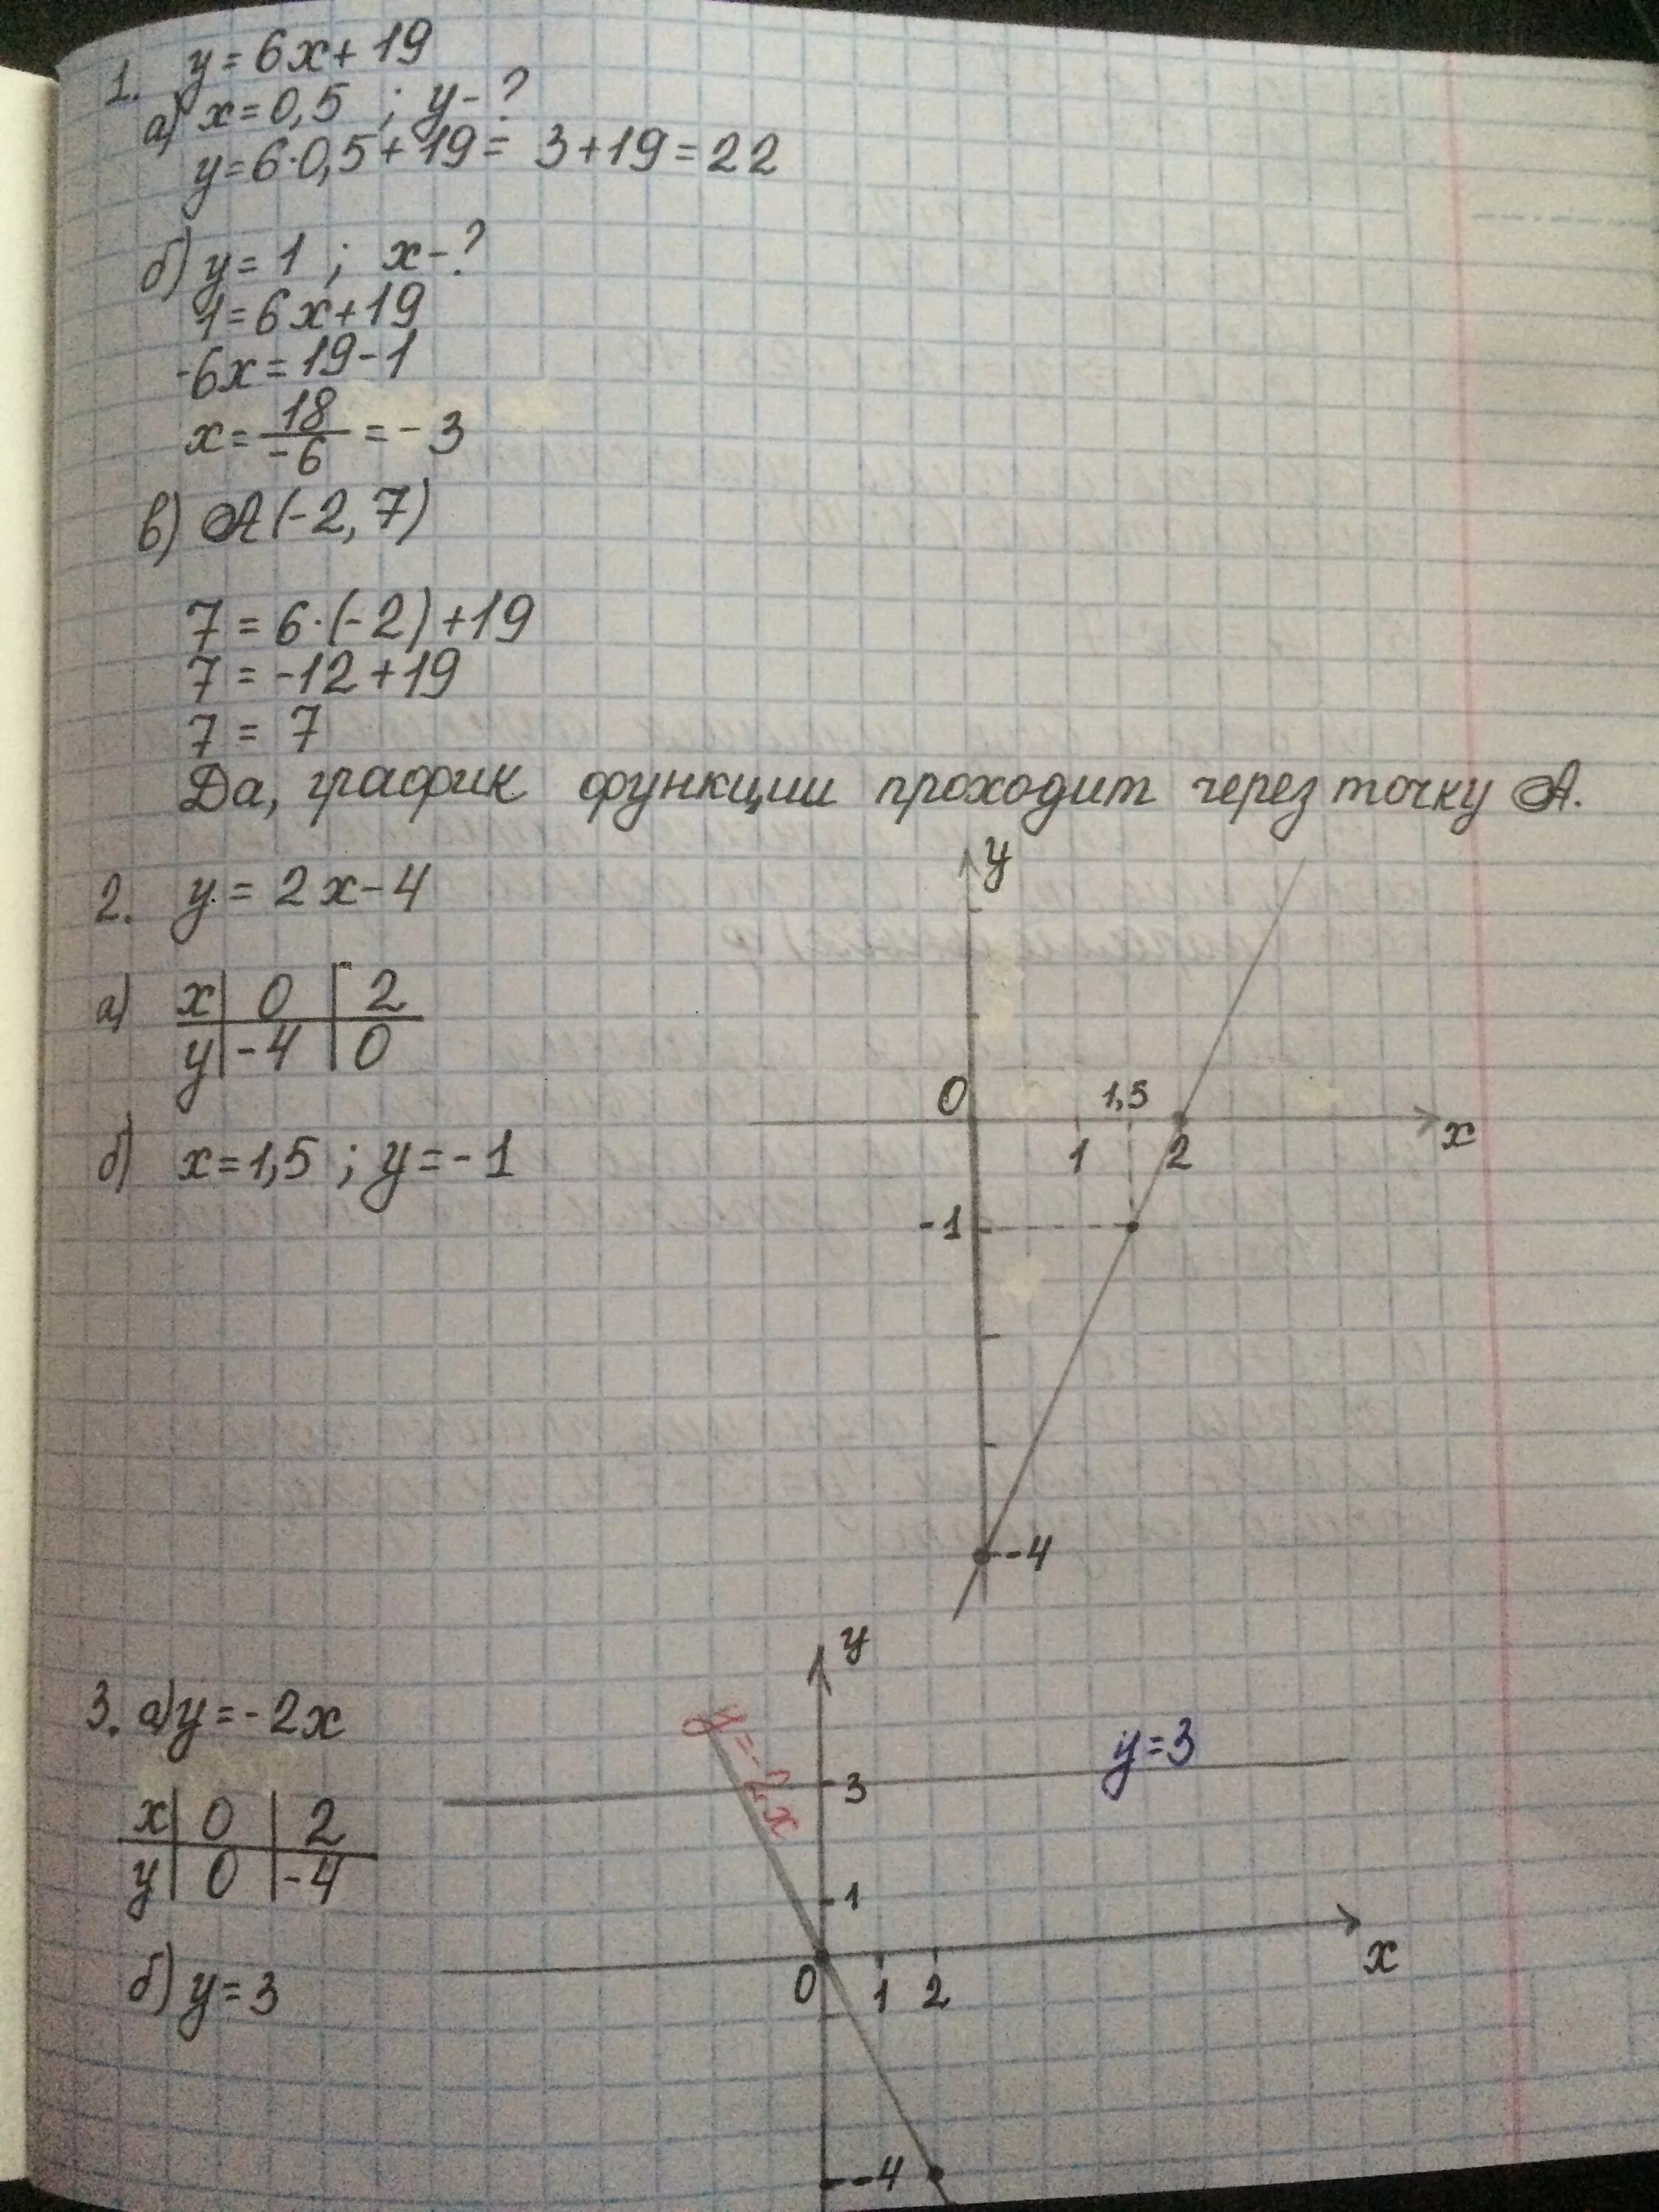 1. y = 6x + 19
а) x = 0,5 ; y - ?
y = 6·0,5 + 19 = 3 + 19 = 22
б) y = 1 ; x - ?
1 = 6x + 19
-6x = 19 - 1
x = 18/-6 = -3
в) A(-2, 7)
7 = 6·(-2) + 19
7 = -12 + 19
7 = 7
Да, график функции проходит через точку A.
2. y = 2x - 4
а) x | 0 | 2
y | -4 | 0
б) x = 1,5 ; y = -1
y
0 1,5
1 2 x
-1
-4
3. а) y = -2x
x | 0 | 2
y | 0 | -4
б) y = 3
y
y = -2x
y = 3
3
1
0 1 2 x
-4